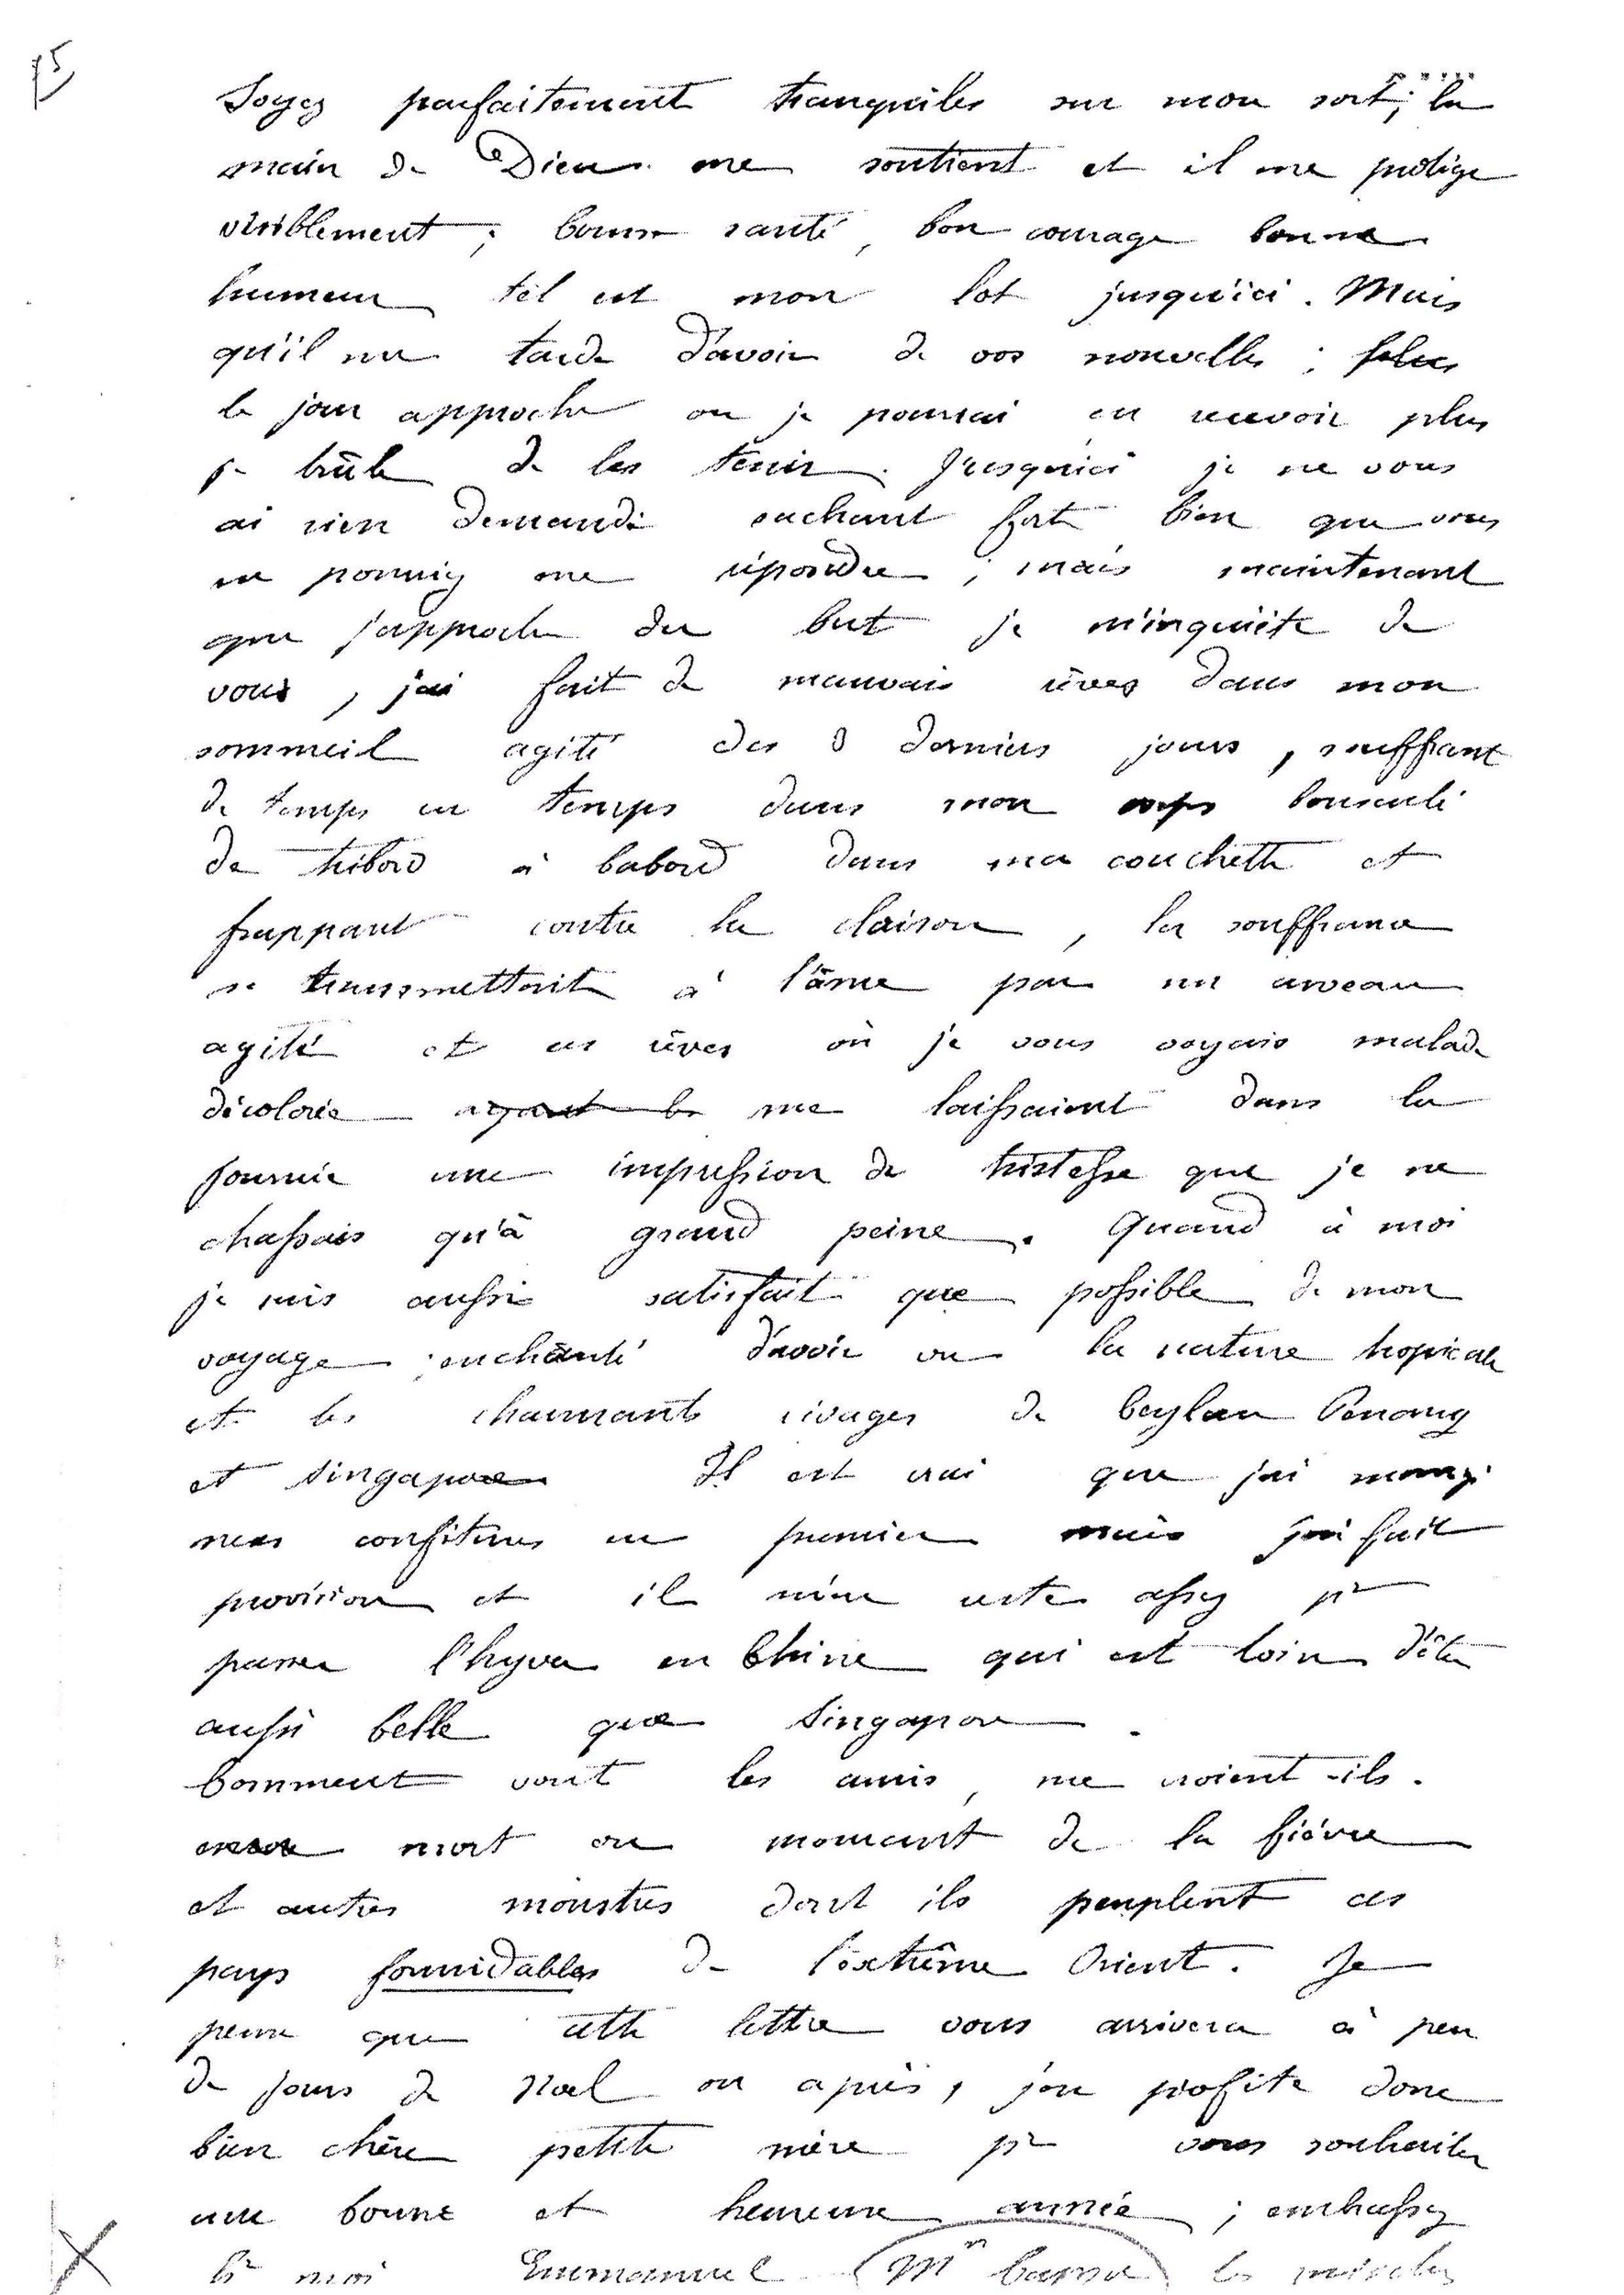 Soyez parfaitement tranquiles sur mon sort; la
main de Dieu me soutient et il me protège
visiblement; bonne santé, bon courage bonne
humeur tel est mon lot jusqu'ici. Mais
qu'il me tarde d'avoir de vos nouvelles; plus
le jour approche ou je pourrai en recevoir plus
je brûle de les tenir. Jusqu'ici je ne vous
ai rien demandé sachant fort bien que vous
ne pouviez me répondre; mais maintenant
que j'approche du but je m'inquiète de
vous, j'ai fait de mauvais rêves dans mon
sommeil agité des 8 derniers jours, souffrant
de temps en temps dans mon corps bousculé
de tribord à babord dans ma couchette et
frappant contre la cloison, la souffrance
se transmettait à l'âme par un cerveau
agité et ces rêves où je vous voyais malade
décolorée ayant le me laissaient dans la
journée une impression de tristesse que je ne
chassais qu'à grand peine. Quand à moi
je suis aussi satisfait que possible de mon
voyage; enchanté d'avoir vu la nature tropicale
et les charmants rivages de Ceylan Penang
et Singapore Il est vrai que j'ai mangé
mes confitures en premier mais j'ai fait
provision et il m'en reste assez pr
passer l'hyver en Chine qui est loin d'être
aussi belle que Singapore.
Comment vont les amis, me croient-ils.
encore mort ou mourant de la fièvre
et autres monstres dont ils peuplent ces
pays formidables de l'extrême Orient. Je
pense que cette lettre vous arrivera à peu
de jours de Noel ou après, j'en profite donc
bien chère petite mère pr vous souhaiter
une bonne et heureuse année; embrassez
pr moi Emmanuel Mr les